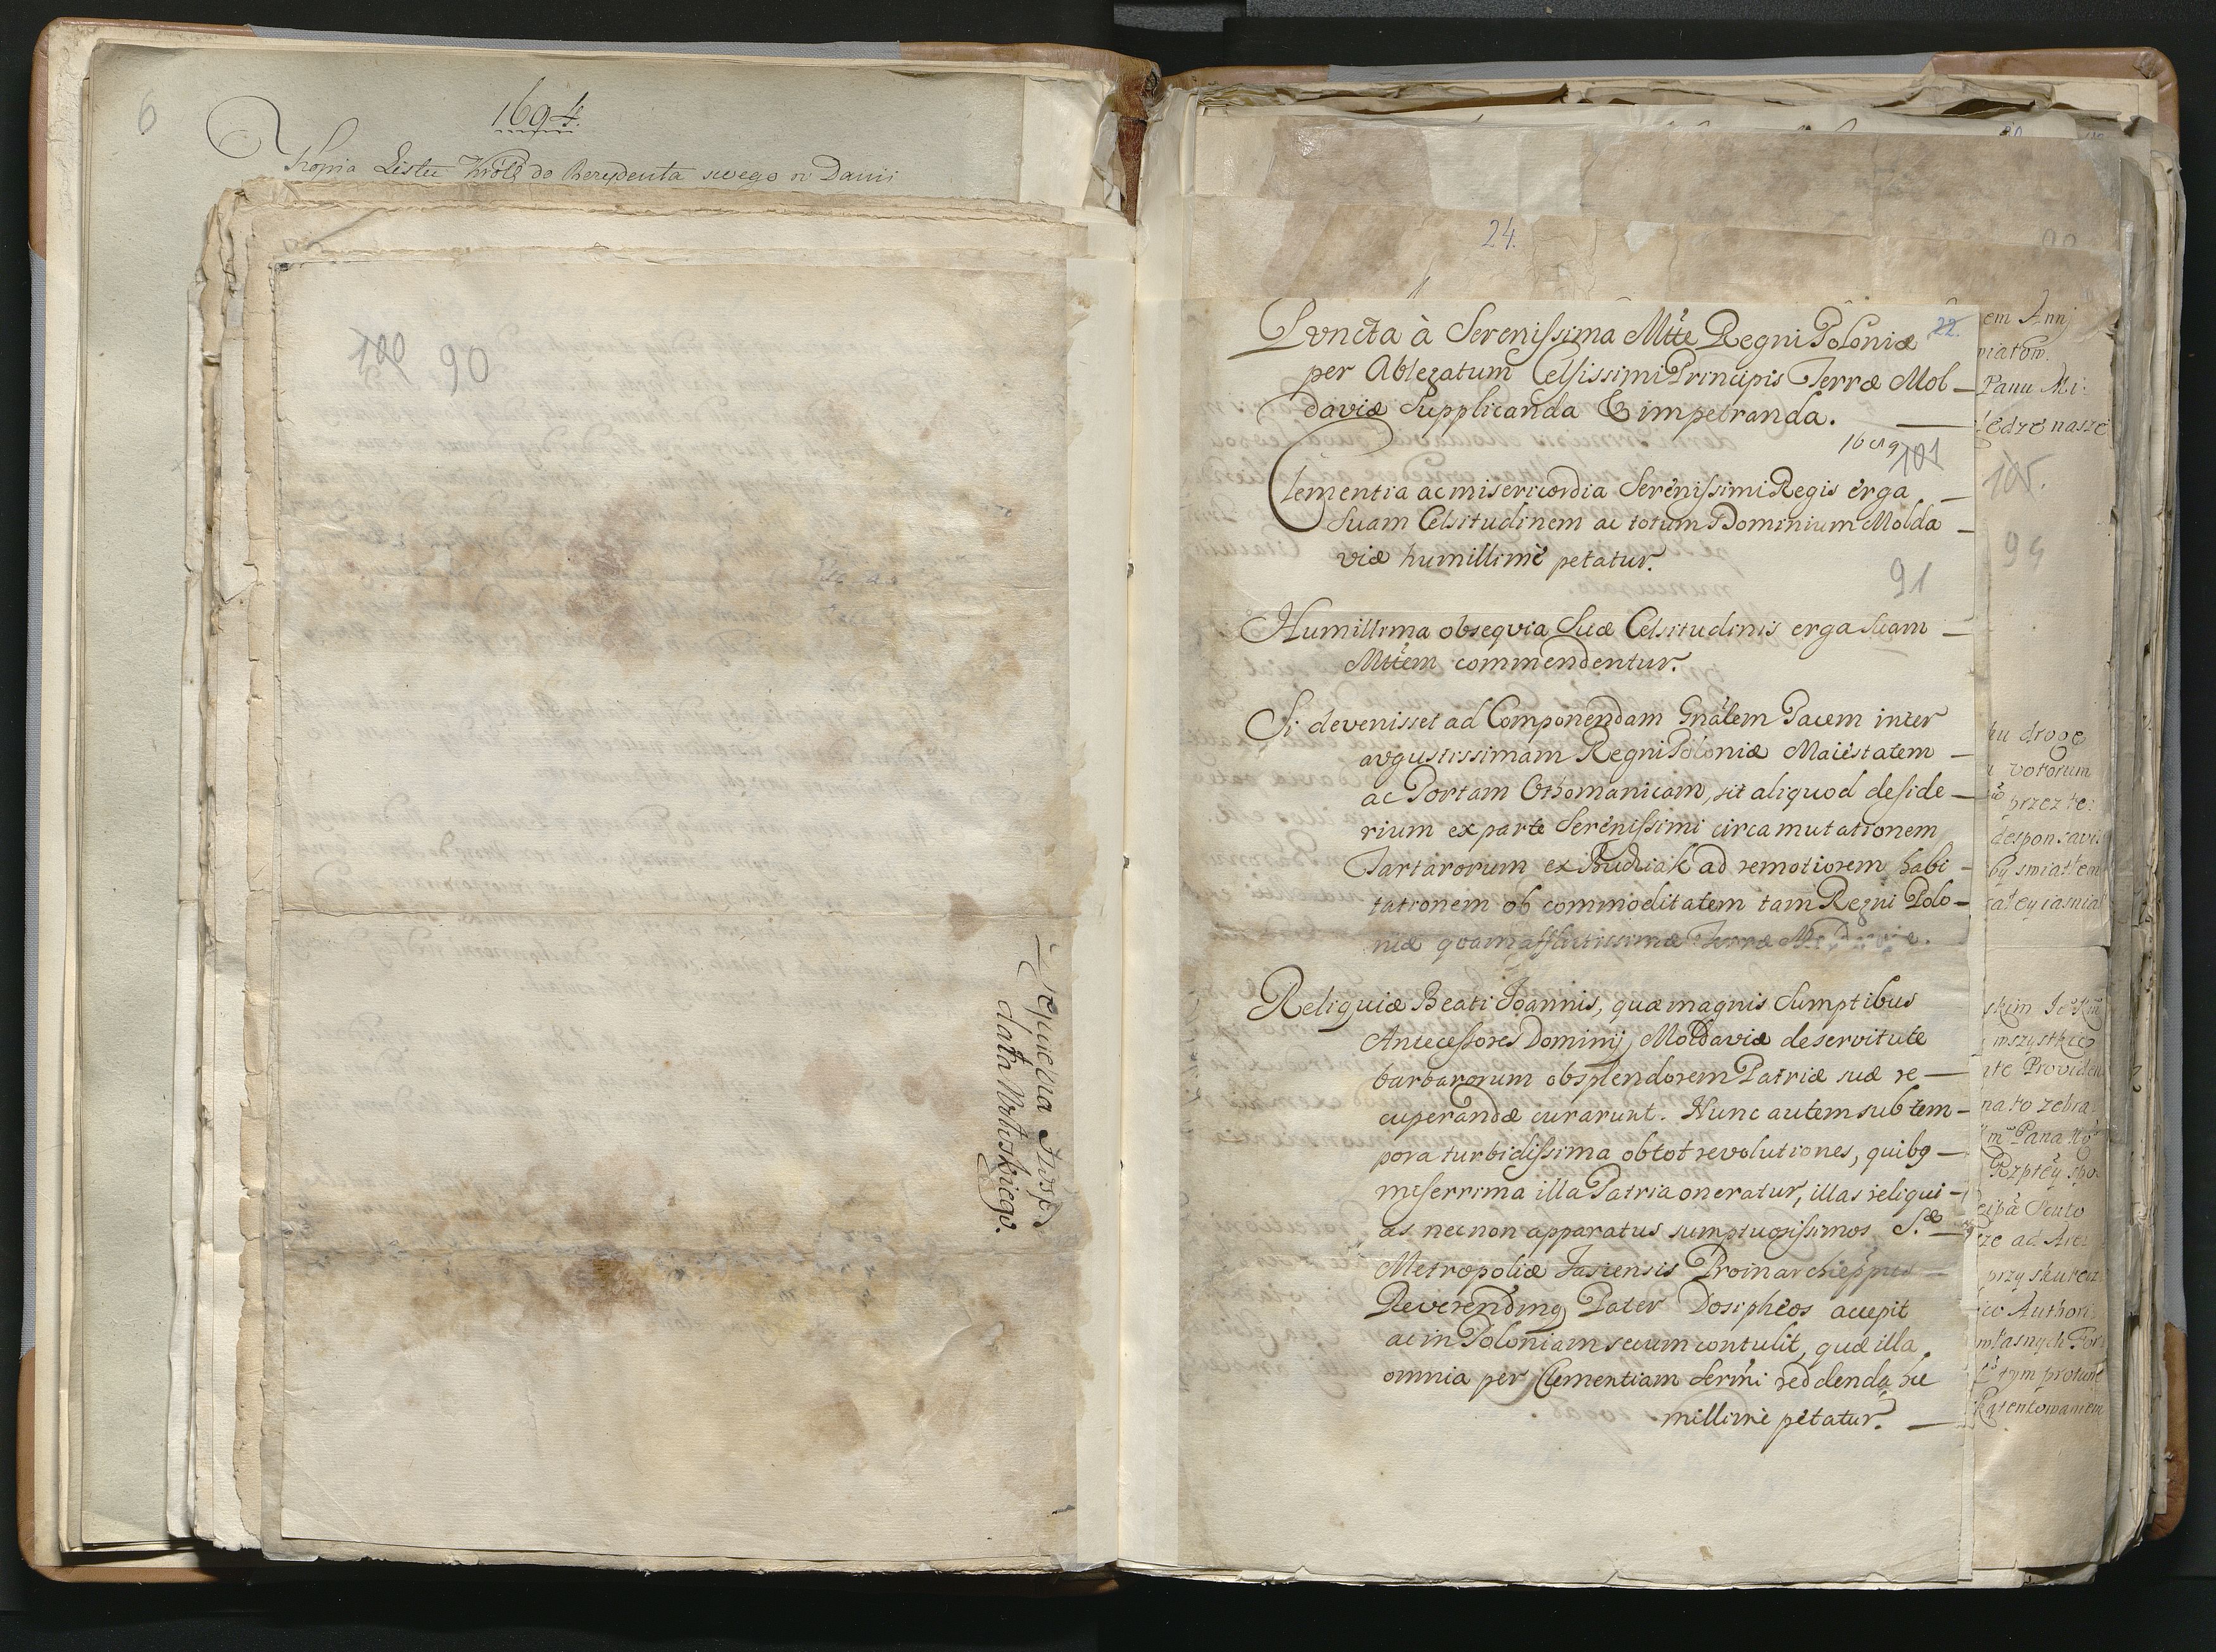 6
1694.
Kopia Listu Króla do Rezydenta swego w Danii
100 90
data Wrboskiego.
24.
22.
Puncta à Serenissima Mtte Regni Poloniæ
per Ablegatum Celsissimi Principis Terræ Mol-
daviæ Supplicanda & impetranda.
1689
101
Clementia ac misericordia Serenissimi Regis erga
Suam Celsitudinem ac totum Dominium Molda-
viæ humillimè petatur.
91
Humillima obseqvia Suæ Celsitudinis erga Suam
Mttem commendentur.
Si devenisset ad Componendam Gnãlem Pacem inter
avgustissimam Regni Poloniæ Maiestatem
ac Portam Othomanicam, sit aliquod deside-
rium ex parte Serenissimi circa mutationem
Tartarorum ex Budziak ad remotiorem habi-
tationem ob commoditatem tam Regni Polo-
niæ qvam afflictissimæ Terræ Moldaviæ.
Reliquiæ Beati Joannis, quæ magnis Sumptibus
Antecessores Dominij Moldaviæ de servitute
barbarorum ob splendorem Patriæ suæ re-
cuperandæ curarunt. Nunc autem sub tem-
pora turbidissima ob tot revolutiones, quibg
miserrima illa Patria oneratur, illas reliqui-
as necnon apparatus sumptuosissimos S.æ
Metropoliæ Jasiensis Proinarchieppus
Reverending Pater Dosipheos accepit
ac in Poloniam secum contulit, quæ illa
omnia per Clementiam Sermi reddenda hu
millimè petatur.
em Annj
Panu Mi:
nasze
105.
94
ku drogę
votorum
przez te:
desponsavi
by swiattem
wszystkie
Provide
na to zebra
Pana
Rzptey
ad
Authori
własnych
tym